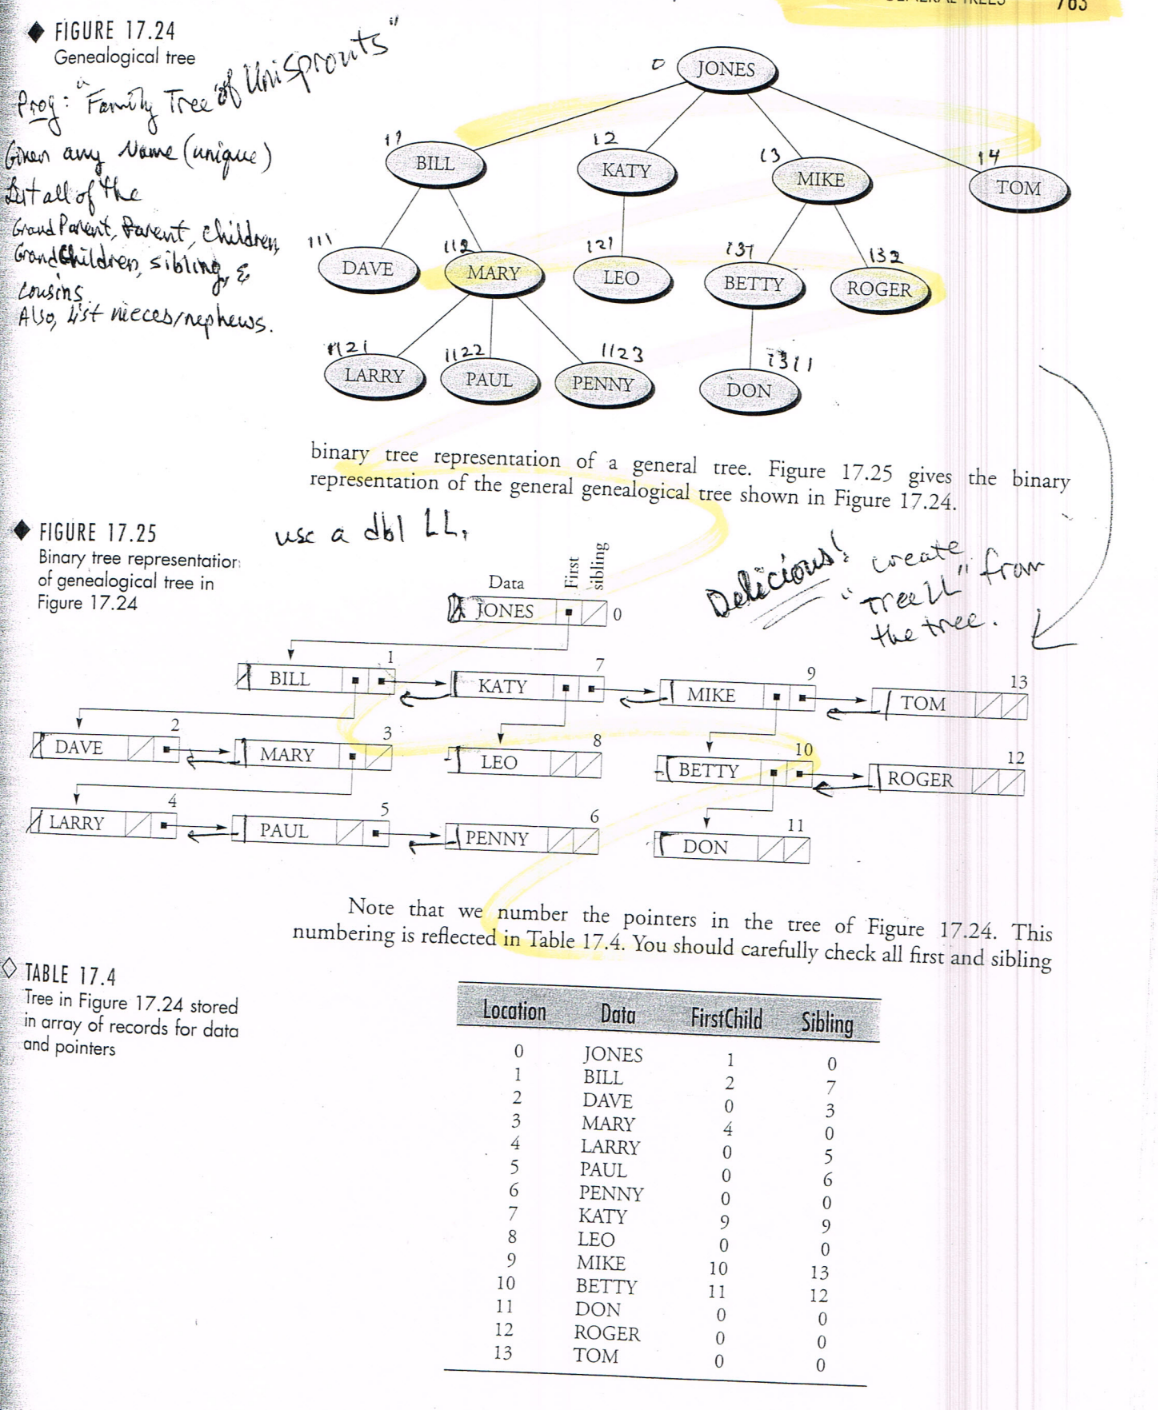 GENERAL TREES 763
◆ FIGURE 17.24
Genealogical tree
Prog: "Family Tree of UniSprouts"
Given any Name (unique)
List all of the
GrandParent, Parent, children,
GrandChildren, sibling, &
cousins
Also, list nieces/nephews.
0
JONES
BILL
12
KATY
13
MIKE
14
TOM
111
DAVE
112
MARY
121
LEO
131
BETTY
132
ROGER
1121
LARRY
1122
PAUL
1123
PENNY
1311
DON
binary tree representation of a general tree. Figure 17.25 gives the binary
representation of the general genealogical tree shown in Figure 17.24.
◆ FIGURE 17.25
Binary tree representation
of genealogical tree in
Figure 17.24
use a dbl LL,
Delicious! create
"TreeLL" from
the tree.
Data First sibling
JONES 0
BILL 1
KATY 7
MIKE 9
TOM 13
DAVE 2
MARY 3
LEO 8
BETTY 10
ROGER 12
LARRY 4
PAUL 5
PENNY 6
DON 11
Note that we number the pointers in the tree of Figure 17.24. This
numbering is reflected in Table 17.4. You should carefully check all first and sibling
◇ TABLE 17.4
Tree in Figure 17.24 stored
in array of records for data
and pointers
Location Data FirstChild Sibling
0 JONES 1 0
1 BILL 2 7
2 DAVE 0 3
3 MARY 4 0
4 LARRY 0 5
5 PAUL 0 6
6 PENNY 0 0
7 KATY 9 9
8 LEO 0 0
9 MIKE 10 13
10 BETTY 11 12
11 DON 0 0
12 ROGER 0 0
13 TOM 0 0